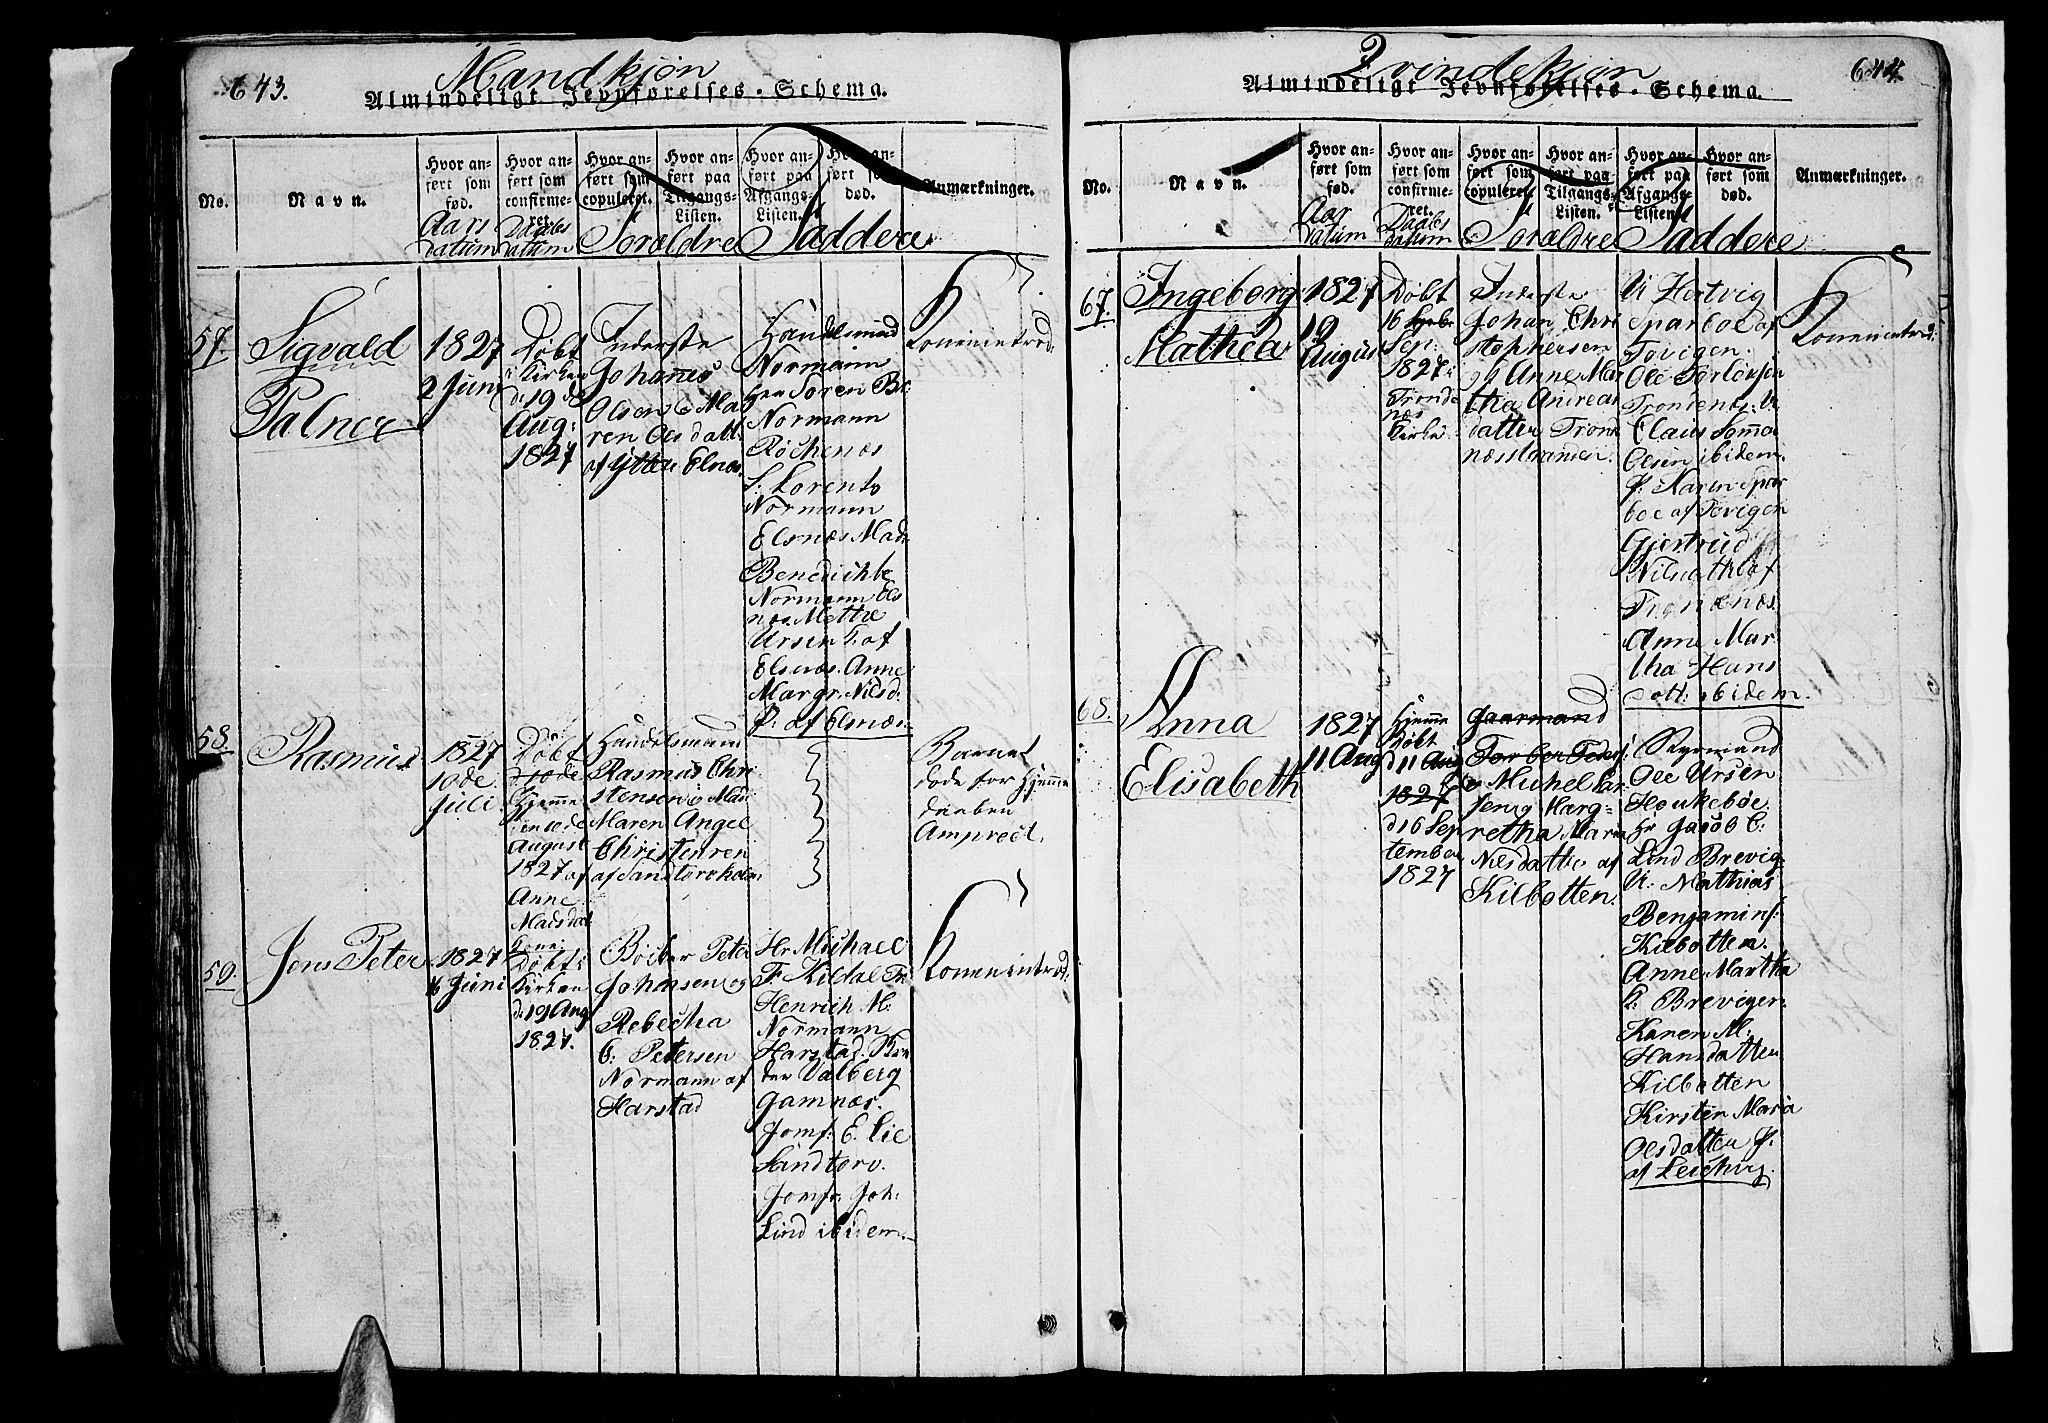 643.
Mandkjøn
Almindeligt Jevnførelses-Schema.
No.
Navn.
Hvor an-
ført som
fød.
Aars
datum
Hvor an-
ført som
confirme-
ret.
Daabs
datum
Hvor an-
ført som
copuleret.
Hvor an-
ført paa
Tilgangs-
Listen.
Foreldre
Hvor an-
ført paa
Afgangs-
Listen.
Hvor an-
ført som
død.
Faddere
Anmærkninger.
57.
Sigvald
Palner
1827
2 Juni
Døbt
i Kirken
d 19de
Aug:
1827
Inderste
Johannes
Olsen & Ma
ren Olsdatt:
af Ytter Elnæs
Handelsmand
Normann
Hr. Søren Br.
Normann
Røchenæs
S: Lorents
Normann
Elsnæs Mad:
Benedichte
Normann Els
næs. Mette
Ursen F. af
Elsnæs. Anne
Margr. Nilsd:
P: af Elsnæs.
K
Konenintrod:
58.
Rasmus
1827
10de
Juli
Døbt
Hjemme
den 10de
August
1827 af
Anne
Madsdat
Handelsmand
Rasmus Chri
stensen & Mad:
Maren Angel
Christensen
af Sandtorvholm
Barnet
døde før Hjemme
daaben
Ampræst.
59.
Jens Peter
1827
16 Juni
Døbt i
Kirken
d: 19 Aug
1827.
Peter
Johansen og
Rebecha
C: Petersen
Normann af
Harstad
Hr Michael
F. Kildal Tr:
Henrich M:
Normann
Harstad.
Valberg
Gamnæs.
Jomf: E. Lie
Sandtorv.
Jomfr: Joh:
Lind ibidem.
K
Konenintrod:
644.
Qvindekjøn
Almindeligt Jevnførelses-Schema.
No.
Navn.
Hvor an-
ført som
fød.
Aar
datum
Hvor an-
ført som
confirme-
ret.
Daabs
datum
Hvor an-
ført som
copuleret.
Hvor an-
ført paa
Tilgangs-
Listen.
Foreldre
Hvor an-
ført paa
Afgangs-
Listen
Hvor an-
ført som
død.
Faddere
Anmærkninger.
67.
Ingeborg
Mathea
1827
19
August
Døbt
16
Sep:
1827 i
Tronde
næs
Kirke
Inderste
Johan Chri
stophersen
og Anne Mar
tha Andreas
datter Trond
næsshavnen.
U Hertvig
Sparboe af
Tovigen.
Ole Torlevsen
Trondenæs: U:
Claus Somme
Olsen ibidem.
P: Maren Spar
boe af Tovigen
Gjertrud
Nilsdatter af
Trondenæs.
Anne Mar
tha Hans
datt: ibidem.
K
Konenintrod:
68.
Anna
Elisabeth
1827
11 Aug
Hjemme
Døbt
d 11 Aug
1827
d 16 Sep
tember
1827
Gaarmand
& Michel Lar
sens Marg-
retha Maria
Nilsdatter af
Kilbotten.
Styrmand
Ole Ursen
Houkebøe
Hr Jacob C:
Lind Brevig
U: Mathias
Benjamins:
Kilbotten.
Anne Martha
K: Brevigen.
Karen M:
Hansdatter
Kilbotten
Kirsten Maria
Olsdatter P: